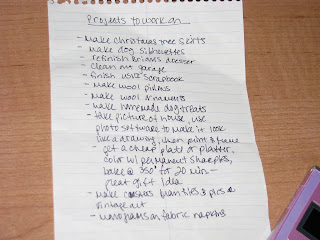 Projects to work on...
- Make Christmas tree skirts
- make dog silhouettes
- refinish Brian's dresser
- clean out garage
- finish scrapbook
- Make wool
- Make wool ornaments
- make homemade dog treats
- take picture of house, use
photo software to make it look
like a drawing, then print & frame
- get a cheap plate or platter,
color w/ permanent sharpies,
bake @ 350° for 20 min -
great gift idea
- make coasters from tiles & pics or
vintage art
- monograms on fabric napkins